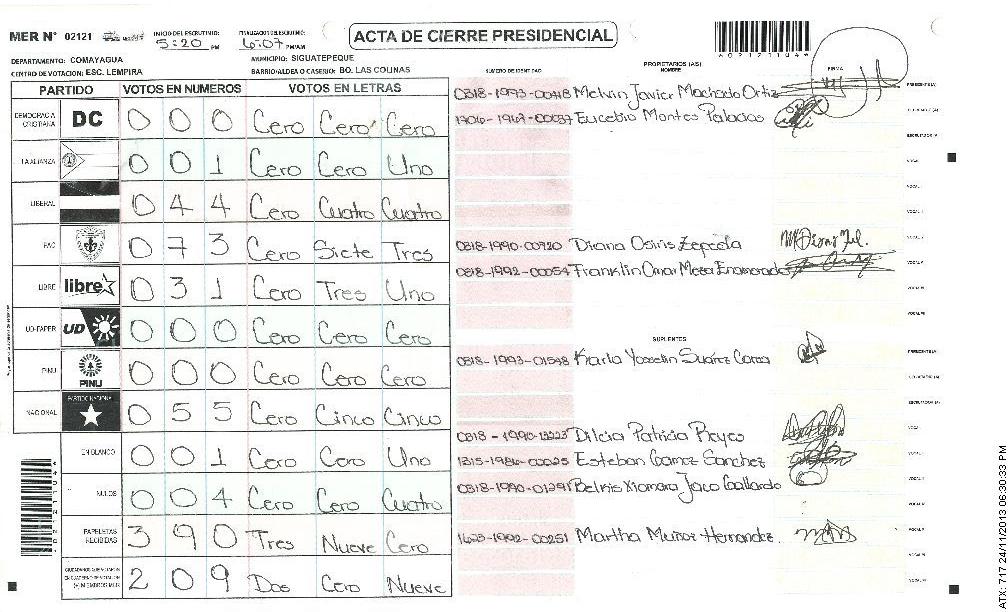 MER N° 02121 INICIO DEL ESCRUTINIO: 5:20 PM FINALIZACION DEL ESCRUTINIO: 6:07 PM/AM
ACTA DE CIERRE PRESIDENCIAL
DEPARTAMENTO: COMAYAGUA MUNICIPIO: SIGUATEPEQUE
CENTRO DE VOTACION: ESC. LEMPIRA BARRIO/ALDEA O CASERIO: BO. LAS COLINAS
PARTIDO VOTOS EN NUMEROS VOTOS EN LETRAS
DEMOCRACIA CRISTIANA DC 0 0 0 Cero Cero Cero
LA ALIANZA 0 0 1 Cero Cero Uno
LIBERAL 0 4 4 Cero Cuatro Cuatro
PAC 0 7 3 Cero Siete Tres
LIBRE libre 0 3 1 Cero Tres Uno
UD-FAPER UD 0 0 0 Cero Cero Cero
PINU PINU 0 0 0 Cero Cero Cero
NACIONAL PARTIDO NACIONAL 0 5 5 Cero Cinco Cinco
EN BLANCO 0 0 1 Cero Cero Uno
NULOS 0 0 4 Cero Cero Cuatro
PAPELETAS RECIBIDAS 3 9 0 Tres Nueve Cero
2 0 9 Dos Cero Nueve
NUMERO DE IDENTIDAD PROPIETARIOS (AS) NOMBRE FIRMA
0318-1993-00418 Melvin Javier Machado Ortiz PRESIDENTE (A)
Eucebio Montes Palacios
ESCRUTADOR (A)
VOCAL I
VOCAL II
0318-1990-00920 Diana Osiris Zepeda
0318-1992-00054 Franklin Omar Meza Enamorado
SUPLENTES
0318-1993-01548 Karla Yosselin Suárez PRESIDENTE (A)
0318-1990- Dilcia Patricia Reyes
1315-1986-00025 Esteban Gomez Sanchez
0318-1990-01291 Belkis Xiomara Jaco Gallardo
Martha Muñoz Hernandez
ATX: 717 24/11/2013 06:30:33 PM